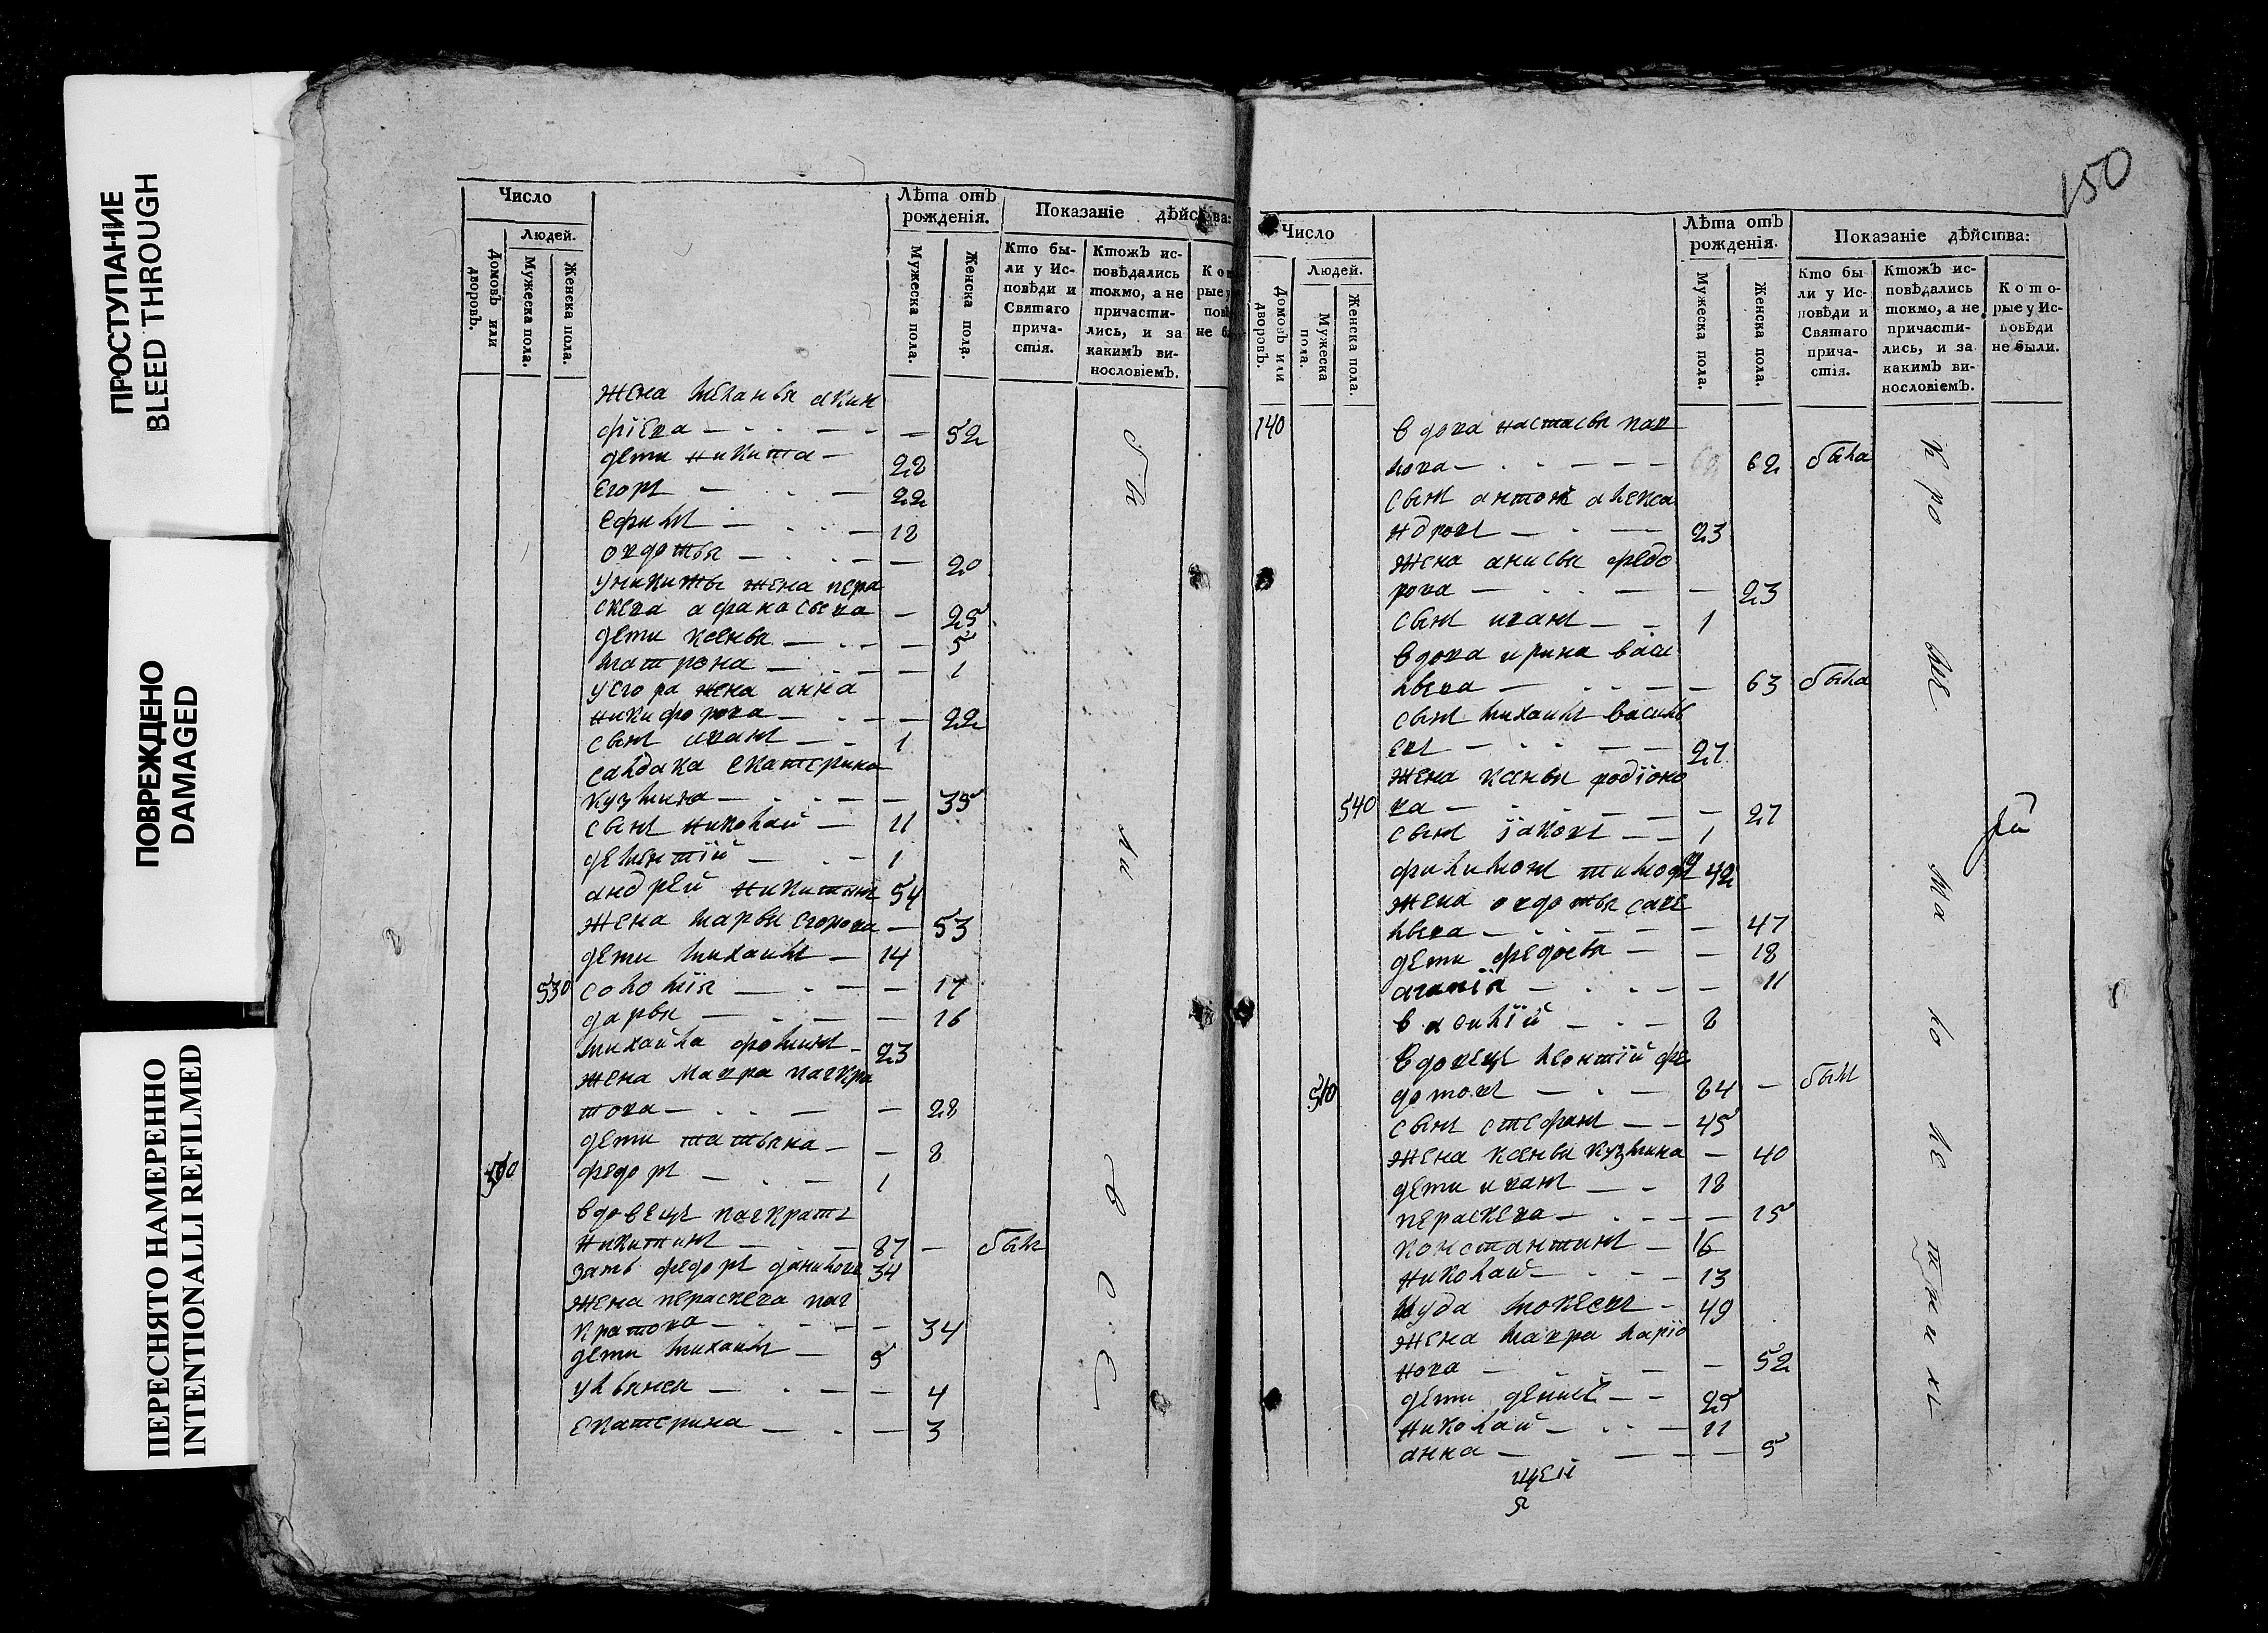 ПРОСТУПАНИЕ
BLEED THROUGH
ПОВРЕЖДЕНО
DAMAGED
ПЕРЕСНЯТО НАМЕРЕННО
INTENTIONALLI REFILMED
Число
Людей.
Домовъ или дворовъ.
Мужеска пола.
Женска пола.
Лѣта отъ рожденія.
Мужеска пола.
Женска пола.
Показаніе дѣйства:
Кто были у Исповѣди и Святаго причастія.
Ктожъ исповѣдались токмо, а не причастились, и за какимъ винословіемъ.
жена меланья акин
фіева — — 52
дети никита — 28
егоръ — 22
ефимъ — 18
овдотья — — 20
уникиты жена пера
скева афанасьева — 25
дети ксенья — — 5
матрона — — 1
уегора жена анна
никифорова — — 22
сынъ иванъ — 1
салдака екатерина
кузмина — — 35
сынъ николай — 11
дементій — 1
андрей никитинъ 54
жена марья егорова — 53
дети михаилъ — 14
530 соломія — — 17
дарья — — 16
михайла фоминъ — 23
жена мавра панкра
това — — 28
дети татьяна — — 8
500 федоръ — 1
вдовецъ панкратъ
никитинъ — 87 — былъ
зать федоръ данилова 34
жена пераскева пан
кратова — — 34
дети михаилъ — 5
ульянея — — 4
екатерина — — 3
150
Число
Людей.
Домовъ или дворовъ.
Мужеска пола.
Женска пола.
Лѣта отъ рожденія.
Мужеска пола.
Женска пола.
Показаніе дѣйства:
Кто бы ли у Исповѣди и Святаго причастія.
Ктожъ исповѣдались токмо, а не причастились, и за какимъ винословіемъ.
Которые у Исповѣди не были.
140 вдова настасья пав
лова — 62 была
сынъ антонъ алекса
ндровъ — 23
жена анисья федо
рова — — 23
сынъ иванъ — 1
вдова ирина васи
льева — — 63 была
сынъ михаилъ василь
евъ — 27
жена ксенья родіоно
540 ва — — 27
сынъ іаковъ — 1
филимонъ тимоф 42
жена овдотья саве
льева — — 47
дети федосья — — 18
агапія — — 11
василій — 8
вдовецъ леонтій фе
510 дотовъ — 84 — былъ
сынъ стефанъ — 45
жена ксенья кузмина — 40
дети иванъ — 18
пераскева — — 15
константинъ — 16
николай — 13
иуда мокеевъ — 49
жена мавра ларіо
нова — — 52
дети денисъ — 25
николай — 11
анна — — 5